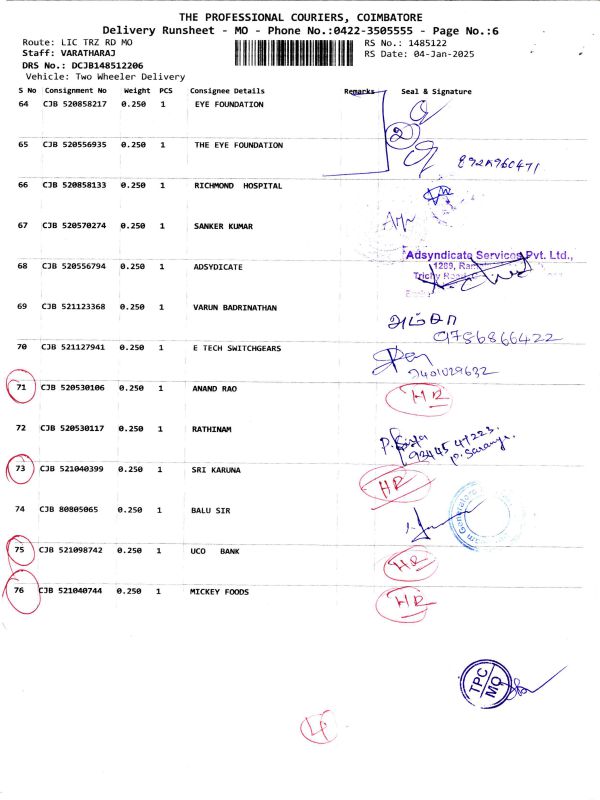 THE PROFESSIONAL COURIERS, COIMBATORE
Delivery Runsheet - MO - Phone No.:0422-3505555 - Page No.:6
Route: LIC TRZ RD MO RS No.: 1485122
Staff: VARATHARAJ RS Date: 04-Jan-2025
DRS No.: DCJB148512206
Vehicle: Two Wheeler Delivery
S No Consignment No Weight PCS Consignee Details Remarks Seal & Signature
64 CJB 520858217 0.250 1 EYE FOUNDATION
2
65 CJB 520556935 0.250 1 THE EYE FOUNDATION
66 CJB 520858133 0.250 1 RICHMOND HOSPITAL
67 CJB 520570274 0.250 1 SANKER KUMAR
Adsyndicate Services Pvt. Ltd.,
68 CJB 520556794 0.250 1 ADSYDICATE
69 CJB 521123368 0.250 1 VARUN BADRINATHAN
9786866422
70 CJB 521127941 0.250 1 E TECH SWITCHGEARS
7401029632
71 CJB 520530106 0.250 1 ANAND RAO HR
72 CJB 520530117 0.250 1 RATHINAM
73 CJB 521040399 0.250 1 SRI KARUNA HR
74 CJB 80805065 0.250 1 BALU SIR
75 CJB 521098742 0.250 1 UCO BANK HR
76 CJB 521040744 0.250 1 MICKEY FOODS HR
TPC
MO
4